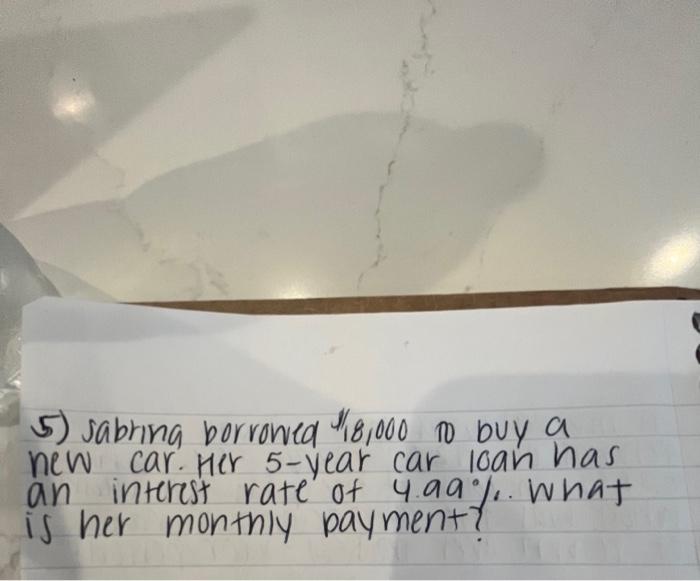 5) Sabrina borrowed $18,000 to buy a
new car. Her 5-year car loan has
an interest rate of 4.99%. What
is her monthly payment?